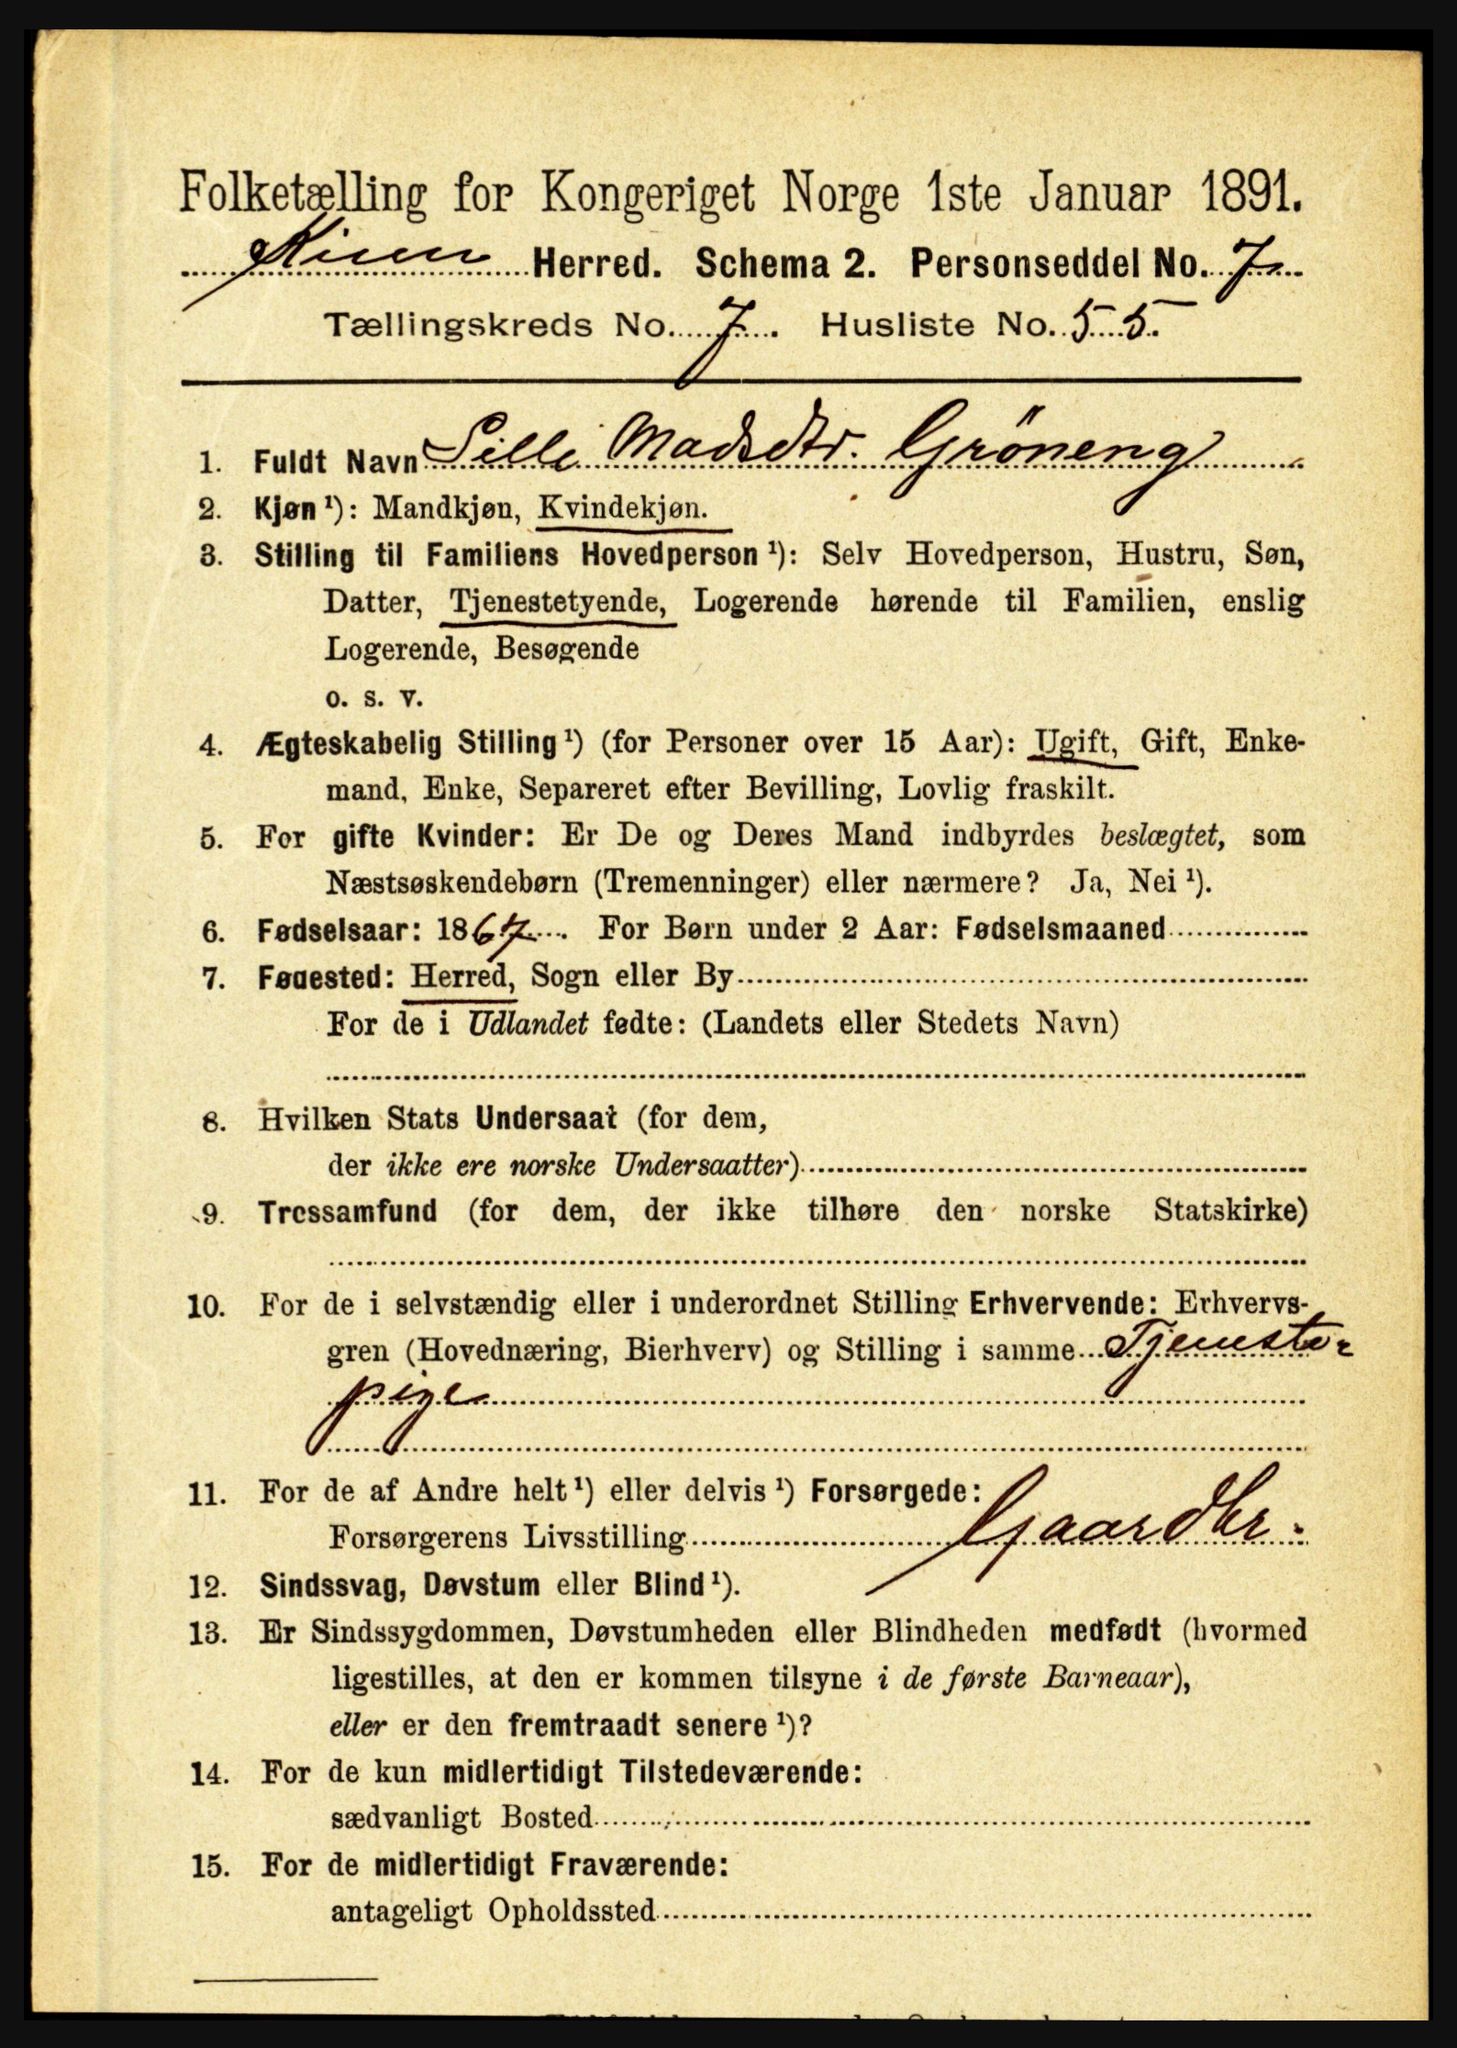 Folketælling for Kongeriget Norge 1ste Januar 1891.
Kinn Herred. Schema 2. Personseddel No. 7
Tællingskreds No. 7. Husliste No. 55.
1. Fuldt Navn Sille Madsdtr. Gröneng
2. Kjøn¹): Mandkjøn, Kvindekjøn.
3. Stilling til Familiens Hovedperson¹): Selv Hovedperson, Hustru, Søn,
Datter, Tjenestetyende, Logerende hørende til Familien, enslig
Logerende, Besøgende
o. s. v.
4. Ægteskabelig Stilling¹) (for Personer over 15 Aar): Ugift, Gift, Enke-
mand, Enke, Separeret efter Bevilling, Lovlig fraskilt.
5. For gifte Kvinder: Er De og Deres Mand indbyrdes beslægtet, som
Næstsøskendebørn (Tremenninger) eller nærmere? Ja, Nei¹).
6. Fødselsaar: 1867. For Børn under 2 Aar: Fødselsmaaned
7. Fødested: Herred, Sogn eller By
For de i Udlandet fødte: (Landets eller Stedets Navn)
8. Hvilken Stats Undersaat (for dem,
der ikke ere norske Undersaatter)
9. Trossamfund (for dem, der ikke tilhøre den norske Statskirke)
10. For de i selvstændig eller i underordnet Stilling Erhvervende: Erhvervs-
gren (Hovednæring, Bierhverv) og Stilling i samme Tjeneste-
pige
11. For de af Andre helt¹) eller delvis¹) Forsørgede:
Forsørgerens Livsstilling Gaardbr.
12. Sindssvag, Døvstum eller Blind¹).
13. Er Sindssygdommen, Døvstumheden eller Blindheden medfødt (hvormed
ligestilles, at den er kommen tilsyne i de første Barneaar),
eller er den fremtraadt senere¹)?
14. For de kun midlertidigt Tilstedeværende:
sædvanligt Bosted
15. For de midlertidigt Fraværende:
antageligt Opholdssted